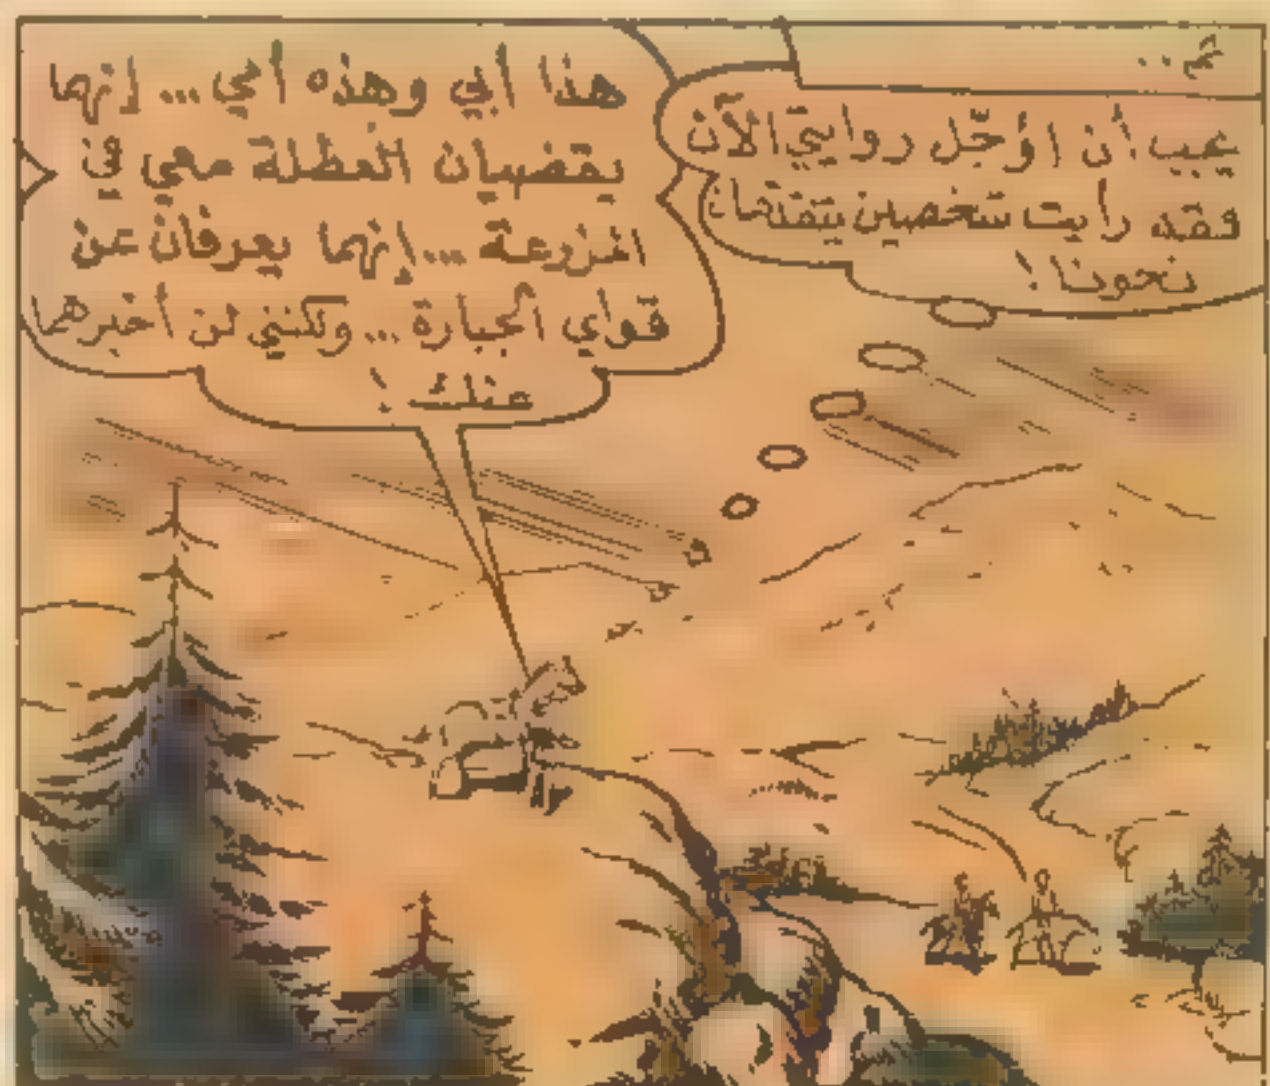 ثم..
يجب أن اؤجّل روايتي الآن
فقد رأيت شخصين يتقدمان
نحونا!
هذا أبي وهذه أمي... إنهما
يقضيان العطلة معي في
المزرعة...إنهما يعرفان عن
قواي الجبارة... ولكنني لن أخبرهما
عنك!